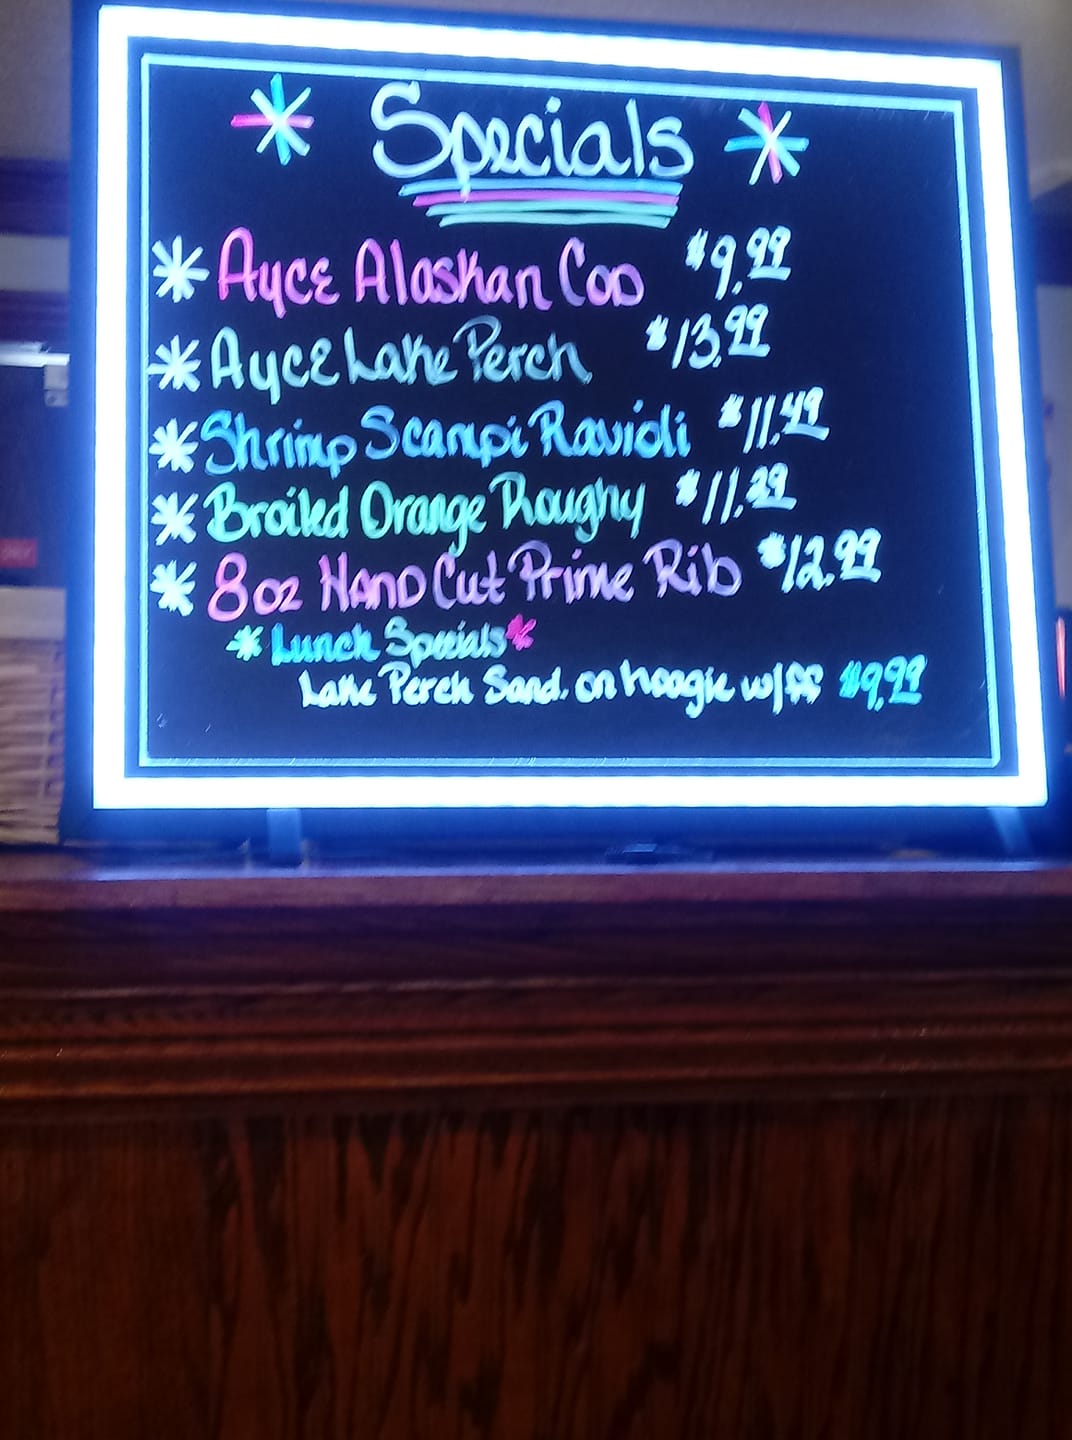 Specials
Ayce Alaskan Cod $9.99
Ayce Lake Perch $13.99
Shrimp Scampi Ravioli $11.49
Broiled Orange Roughy
8oz Hand Cut Prime Rib $12.99
*Lunch Specials*
Lake Perch Sand. on hoagie w/ff $9.99